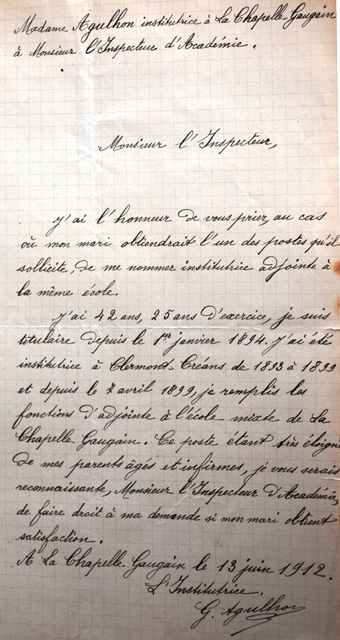 Madame Agulhon institutrice à La Chapelle-Gaugain
à Monsieur l'Inspecteur d'Académie.
Monsieur l'Inspecteur,
J'ai l'honneur de vous prier, au cas
où mon mari obtiendrait l'un des postes qu'il
sollicite, de me nommer institutrice adjointe à
la même école.
J'ai 42 ans, 25 ans d'exercice, je suis
titulaire depuis le 1er janvier 1894. J'ai été
institutrice à Clermont-Créans de 1893 à 1899
et depuis le 7 avril 1899, je remplis les
fonctions d'adjointe à l'école mixte de La
Chapelle Gaugain. Ce poste étant très éloigné
de mes parents âgés et infirmes, je vous serais
reconnaissante, Monsieur l'Inspecteur d'Académie,
de faire droit à ma demande si mon mari obtient
satisfaction.
A La Chapelle-Gaugain le 13 juin 1912.
L'Institutrice.
G. Agulhon